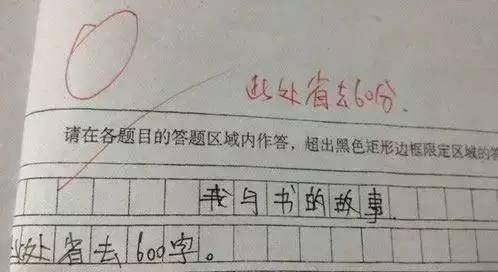 此处省去60分.
请在各题目的答题区域内作答，超出黑色矩形边框限定区域的答
我与书的故事
此处省去600字。